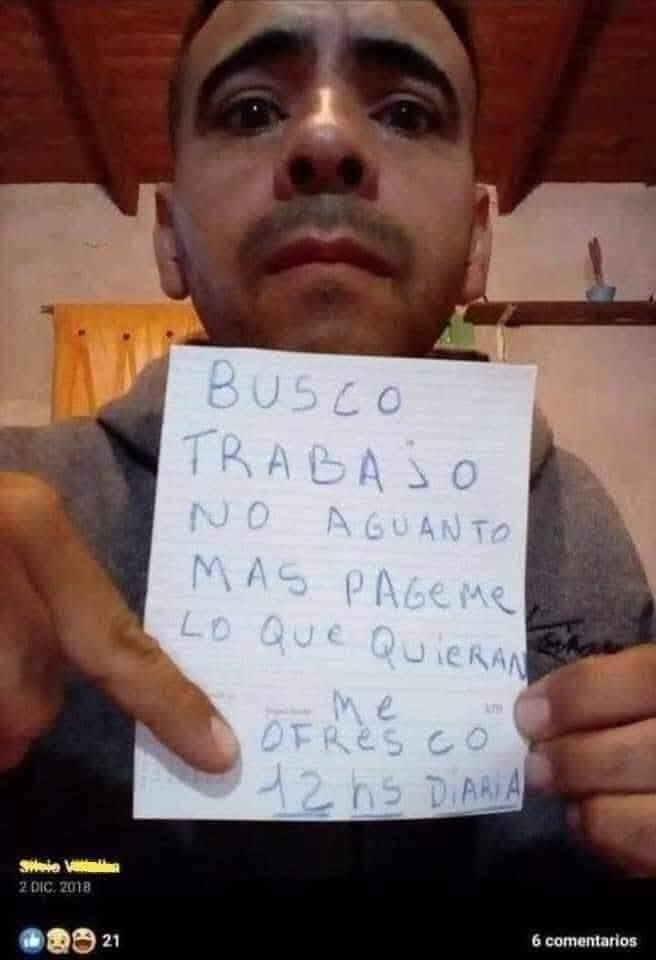 BUSCO
TRABAjO
NO AGUANTO
MAS PAGEME
LO QUE QUIERAN
ME
OFRESCO
12 hs DIARIA
2 DIC. 2018
21
6 comentarios